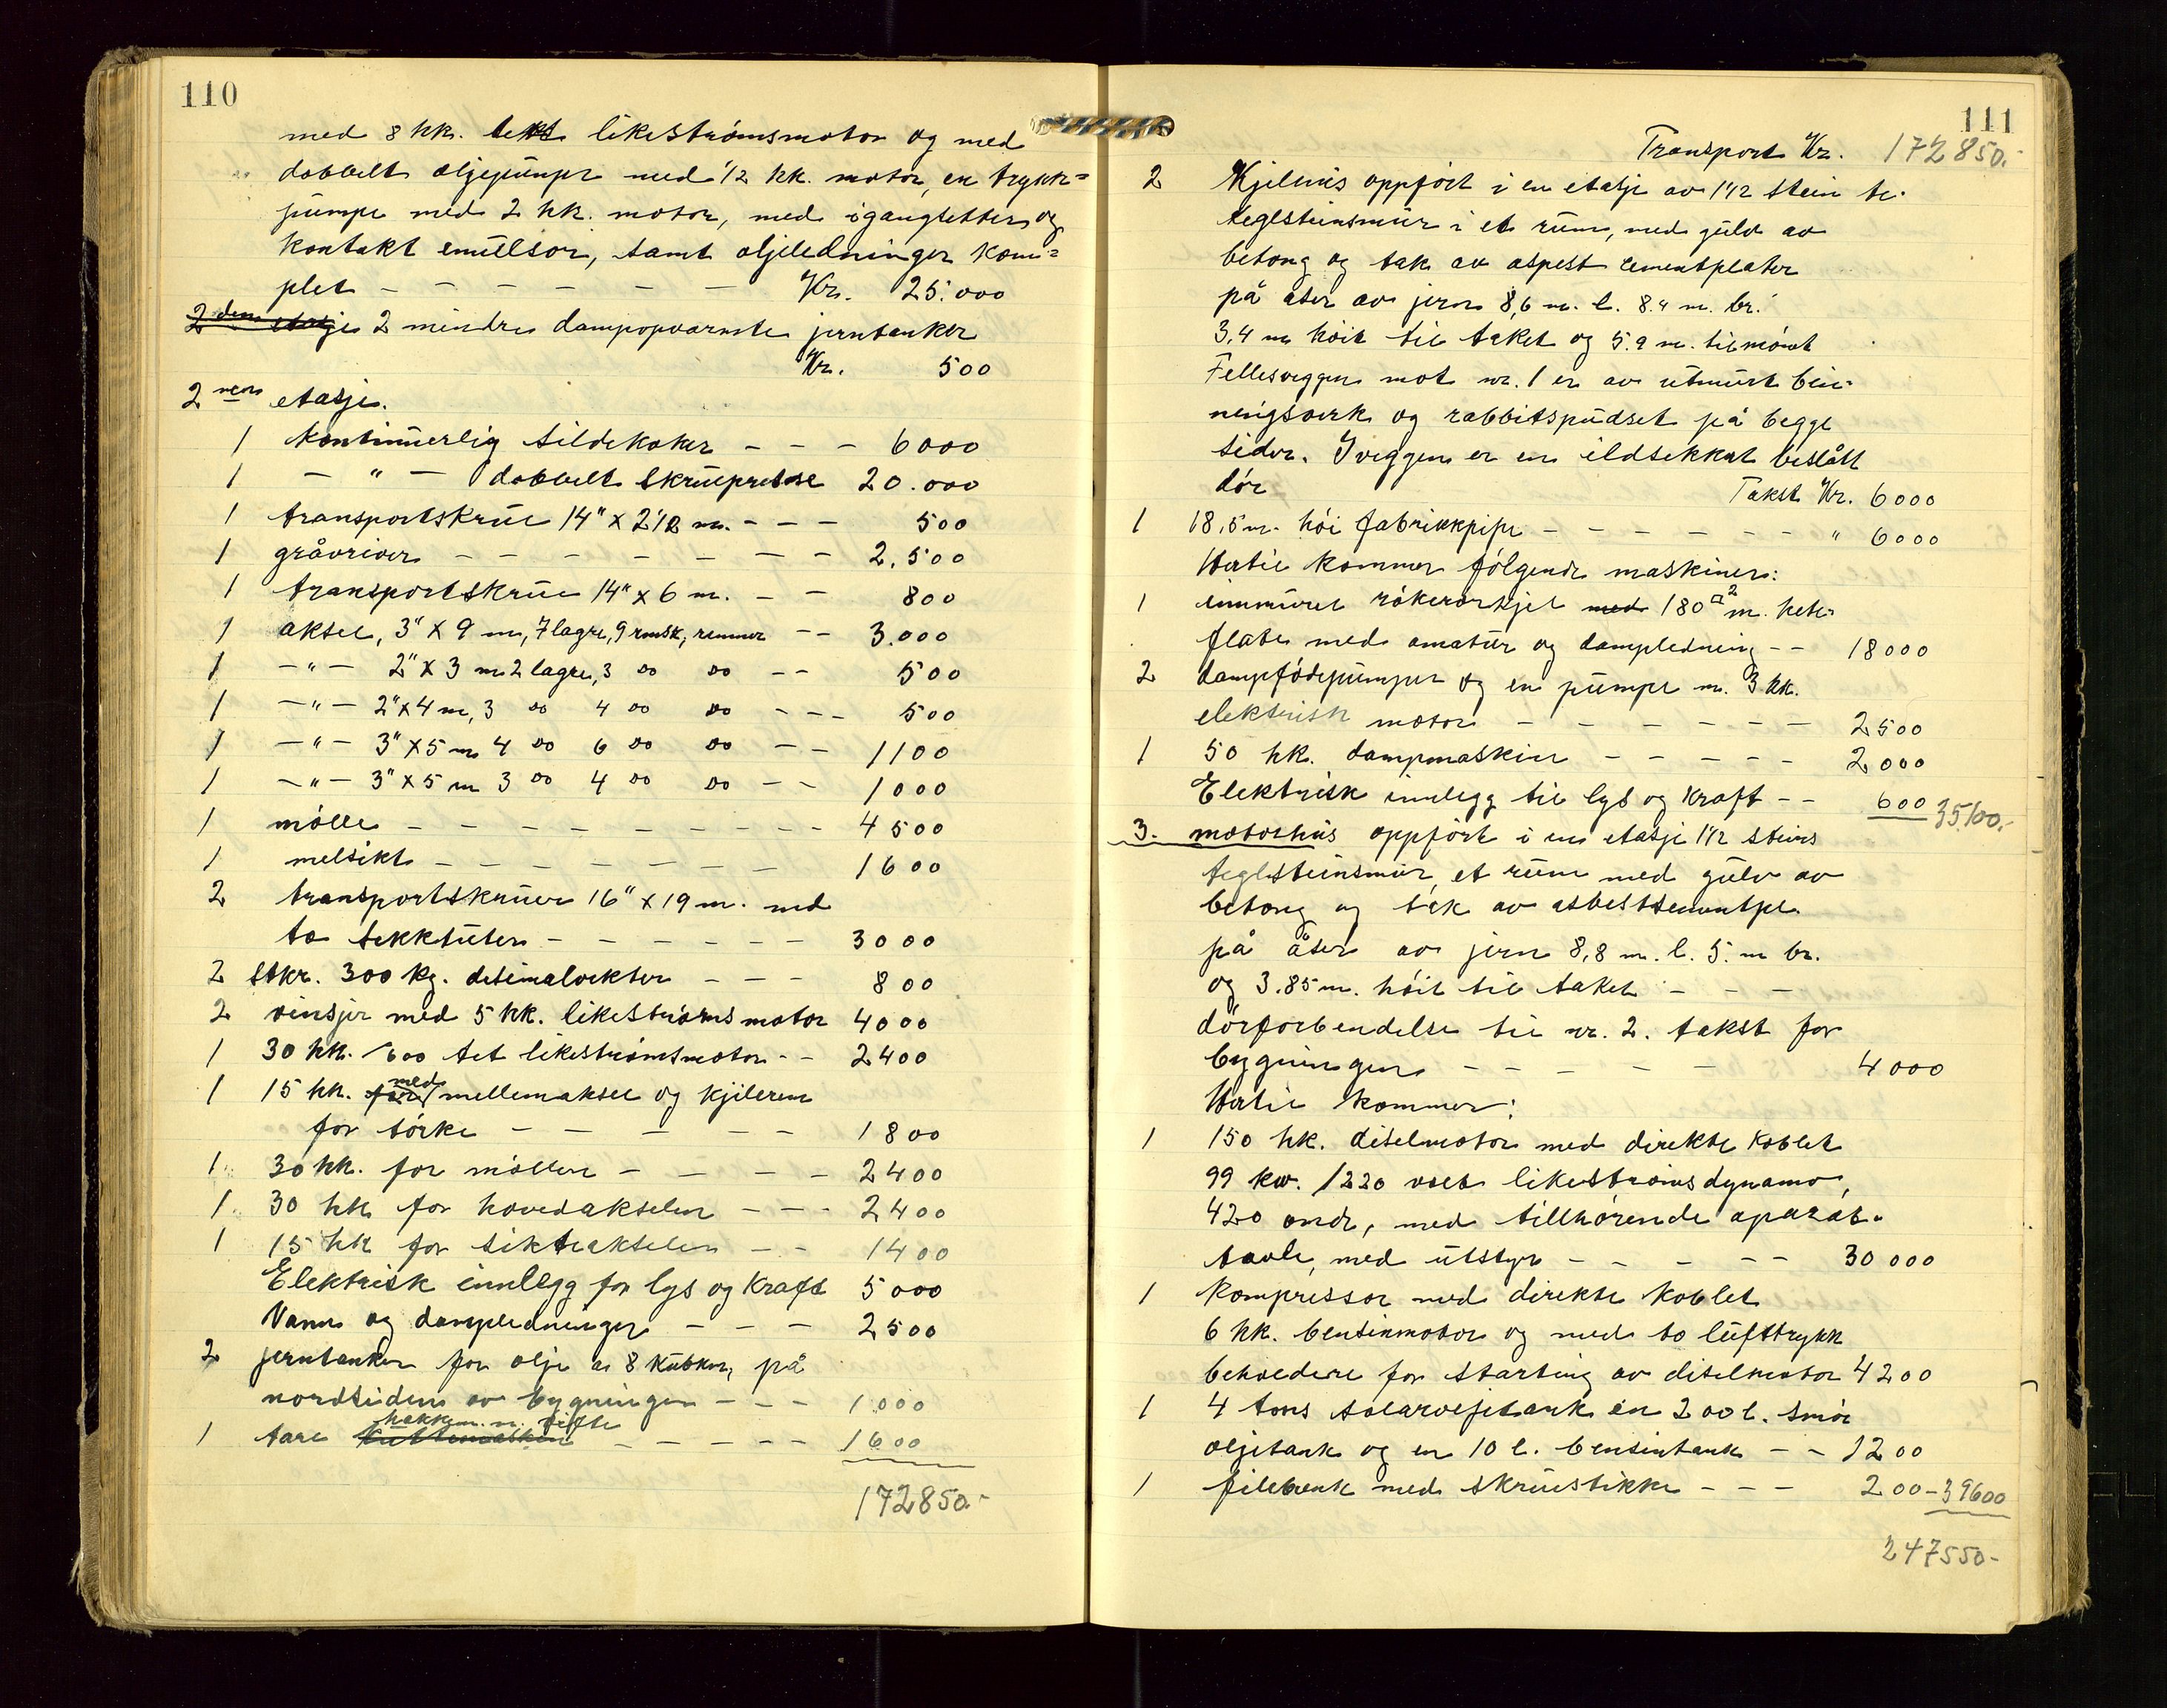 110
med 8 hk. likestrømsmotor og med
dobbelt oljepumpe med 1/2 hk. motor, en trykk=
pumpe med 2 hk. motor, med igangsetter og
kontakt emullsor, samt oljeledninger kom=
plet — — — — — — Kr. 25.000
2den etasje 2 mindre dampopvarmte jerntanker
Kr. 500
2nen etasje.
1 kontinuerlig sildekoker - - - 6000
1 — " — dobbelt skruepresse 20.000
1 transportskrue 14" x 2 1/2 m. - - - 500
1 gråvriver - - - - - - - 2.500
1 transportskrue 14" x 6 m. - - 800
1 aksel, 3" x 9 m, 7 lagre, 9 remsk, remmer - - 3.000
1 —"— 2" x 3 m 2 lagre, 3 do do - - 500
1 —"— 2" x 4 m, 3 do 4 do do - - - 500
1 —"— 3" x 5 m 4 do 6 do do - - 1100
1 —"— 3" x 5 m 3 do 4 do do - - 1000
1 mølle - - - - - - - - - 4500
1 melsikt - - - - - - - 1600
2 transportskruer 16" x 19 m. med
to sekktuter - - - - - - 3000
2 stkr. 300 kg. desimalvekter - - - 800
2 vinsjer med 5 hk. likestrøms motor 4000
1 30 hk. 600 tet likestrømsmotor - - 2400
1 15 hk. for med mellemaksel og kjilerem
for tørke - - - - - 1800
1 30 hk. for møllen - - - - 2400
1 30 hk for hovedakselen - - - 2400
1 15 hk for sikteakselen - - 1400
Elektrisk innlegg for lys og kraft 5000
Vann og dampledninger - - - 2500
2 jerntanker for olje a 8 kubkm, på
nordsiden av bygningen - - - 1000
hakkem. m. vifte
1 tare kuttemaskin - - - - - 1600
172850.-
111
Transport Kr. 172850.-
2 Kjelhus oppført i en etasje av 1 1/2 stein te-
teglsteinsmur i et rum, med gulv av
betong og tak av aspest cementplater
på åser av jern 8,6 m. l. 8.4 m. br.
3,4 m høit til taket og 5.9 m. til mønet
Fellesveggen mot nr. 1 er av utmurt bin-
ningsverk og rabbitspudset på begge
sider. I veggen er en ildsikker beslått
dør Takst Kr. 6000
1 18,5 m. høi fabrikkpipe - - - - - - " 6000
Hertil kommer følgende maskiner:
1 innmuret røkerørskjel med 180 □2 m. hete-
flate med amatur og dampledning - - 18000
2 dampfødepumper og en pumpe m. 3 hk.
elektrisk motor - - - - - - 2500
1 50 hk. dampmaskin - - - - - 2000
Elektrisk innlegg til lys og kraft - - 600 35100.-
3. motorhus oppført i en etasje 1 1/2 steins
teglsteinsmur, et rum med gulv av
betong og tak av asbestsementpl.
på åser av jern 8,8 m. l. 5. m br.
og 3.85 m. høit til taket - - -
dørforbendelse til nr. 2. takst for
bygningen - - - - - 4000
Hertil kommer:
1 150 hk. diselmotor med direkte koblet
99 kw. /220 volt likestrøms dynamo,
420 omdr, med tillhørende aparat-
tavle, med utstyr - - - - - 30 000
1 kompressor med direkte koblet
6 hk. bensinmotor og med to lufttrykk
beholdere for starting av diselmotor 4200
1 4 tons solaroljetank en 200 l. smør
oljetank og en 10 l. bensintank - - 1200
1 filebenk med skruestikke - - - 200 - 39600
247550-